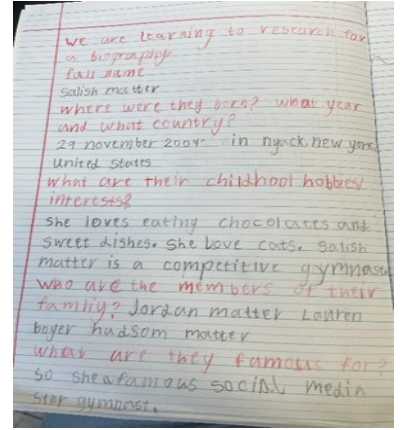 we are learning to research for
a biography
full name
Salish matter
where were they born? what year
and what country?
29 november 2009 in nyack, new york,
united states
what are their childhool hobbies/
interests?
she loves eating chocolates and
sweet dishes. she love cats. salish
matter is a competitive gymnast
who are the members of their
famliy? Jordan matter Lauren
boyer hudsom matter
what are they famous for?
so she a famous social media
star gymnast.